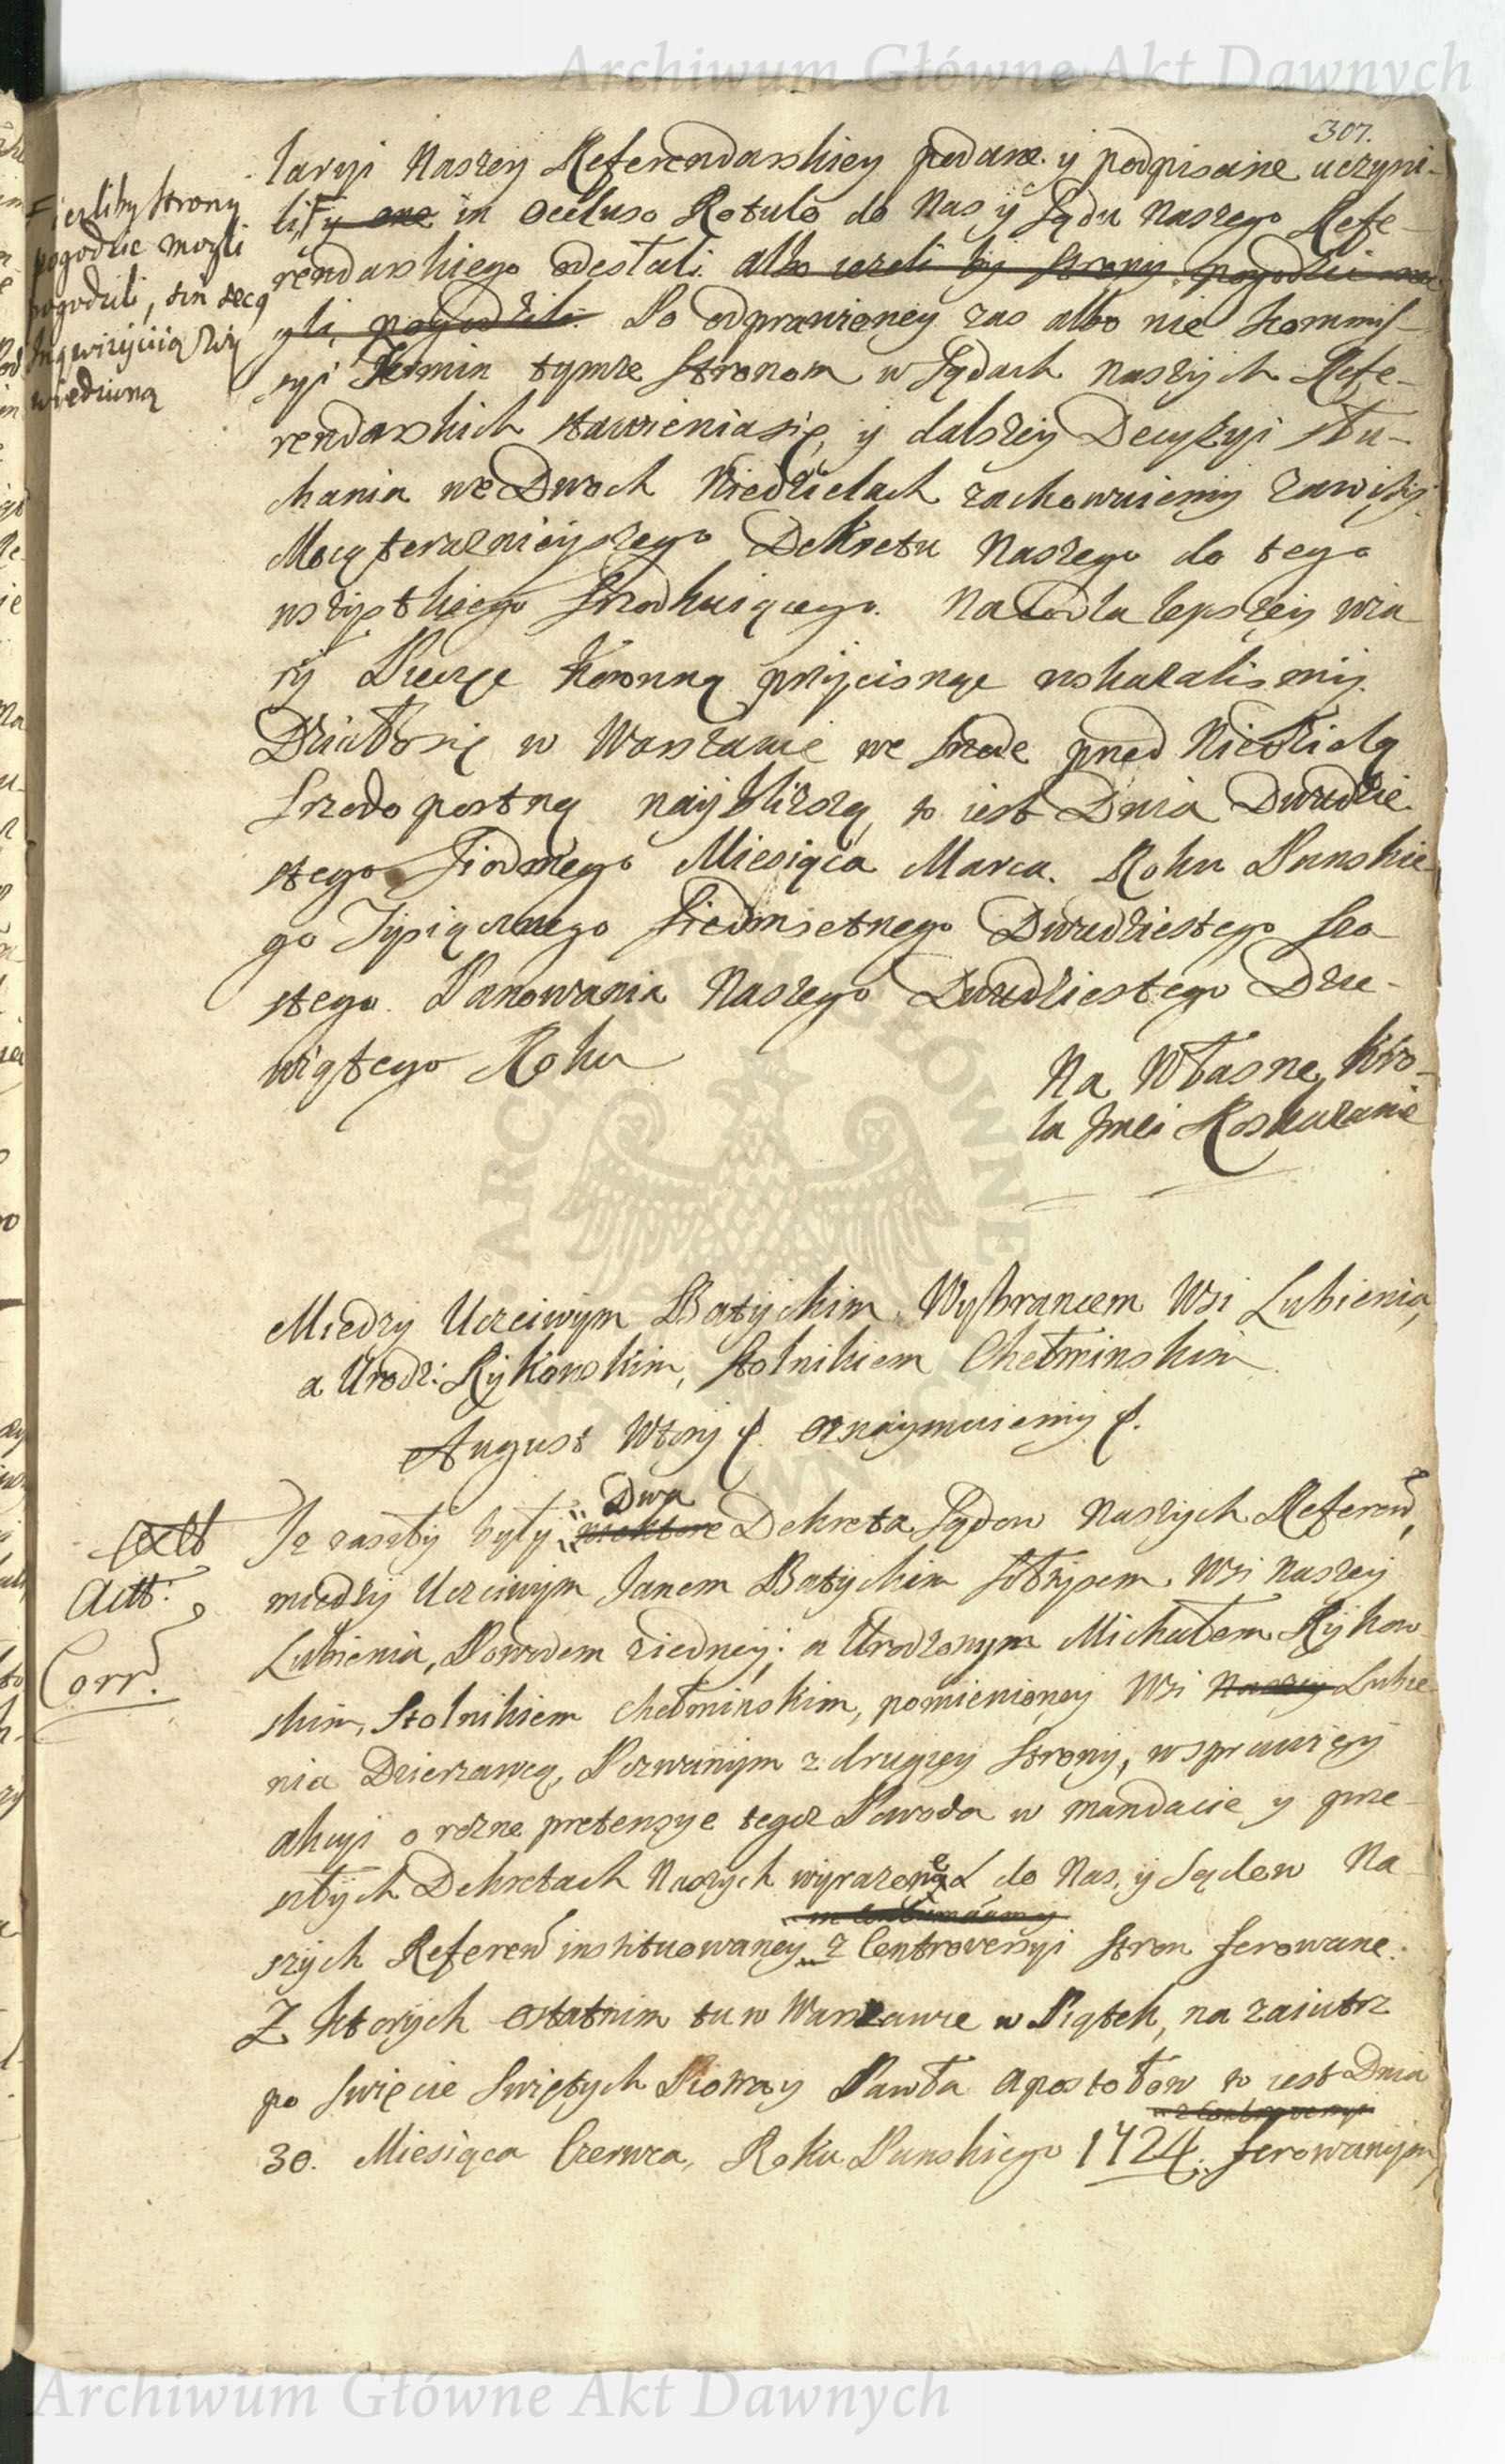 Archiwum Główne Akt Dawnych
307.
laryi Naszey Referendarskiey podane y podpisane uczyni-
li, F y one in occluso Rotulo do Nas y Sądu Naszego Refe-
rendarskiego odesłali. albo iezeli by strony pogodzic mo
gli, pogodzili. Po odprawioney zas albo nie Kommis-
syi Termin tymze stronom w Sądach Naszych Refe-
rendarskich stawienia się, y dalszey Decyzyi słu-
chania we Dwoch Niedzielach zachowuiemy zawity.
Mocą teraznieyszego Dekretu Naszego do tego
wszystkiego srzodkuiącego. Na co dla lepszey wia
ry Pieczęc Koronną przycisnąc rozkazalismy.
Działo się w Warszawie we srzode przed Niedzielą
Srzodopostną nayblizszą, to iest Dnia Dwudzie
stego Siodmego Miesiąca Marca. Roku Panskie
go Tysiącznego Siedmsetnego Dwudziestego Szo
stego. Panowania Naszego Dwudziestego Dzie-
wiątego Roku
Na Własne Kro-
la Jmci Roskazanie
F iezliby strony
pogodzic mogli
pogodzili, sin secq
Inqwizycią Wy
wiedzioną
Miedzy Uczciwym Batychim Wybrancem Wsi Lubienia,
a Urodz: Rykowskim, Stolnikiem Chełminskim
August Wtory &. oznaymuiemy &.
Ext
Actt:
Corr.
Iz zaszły były niektore Dwa Dekreta Sądow Naszych Referen,
miedzy Uczciwym Janem Batychim sołtysem Wsi Naszey
Lubienia, Powodem z iedney; a Urodzonym Michałem Rykow
skim, Stolnikiem Chełminskim, pomienioney Wsi Naszey Lubie
nia Dzierzawcą, Pozwanym z drugiey strony, w sprawie y
akcyi o rozne pretensye tegoz Powoda w mandacie y prze
szłych Dekretach Naszych wyrazone do Nas, y Sądow Na
szych Referen instituowaney z Controversyi stron ferowane.
Z ktorych ostatnim tu w Warszawie w Piątek, na zaiutrz
po swięcie Swiętych Piotra y Pawła Apostołow to iest Dnia
z Controversyi
30. Miesiąca Czerwca, Roku Panskiego 1724. ferowanym,
Archiwum Główne Akt Dawnych